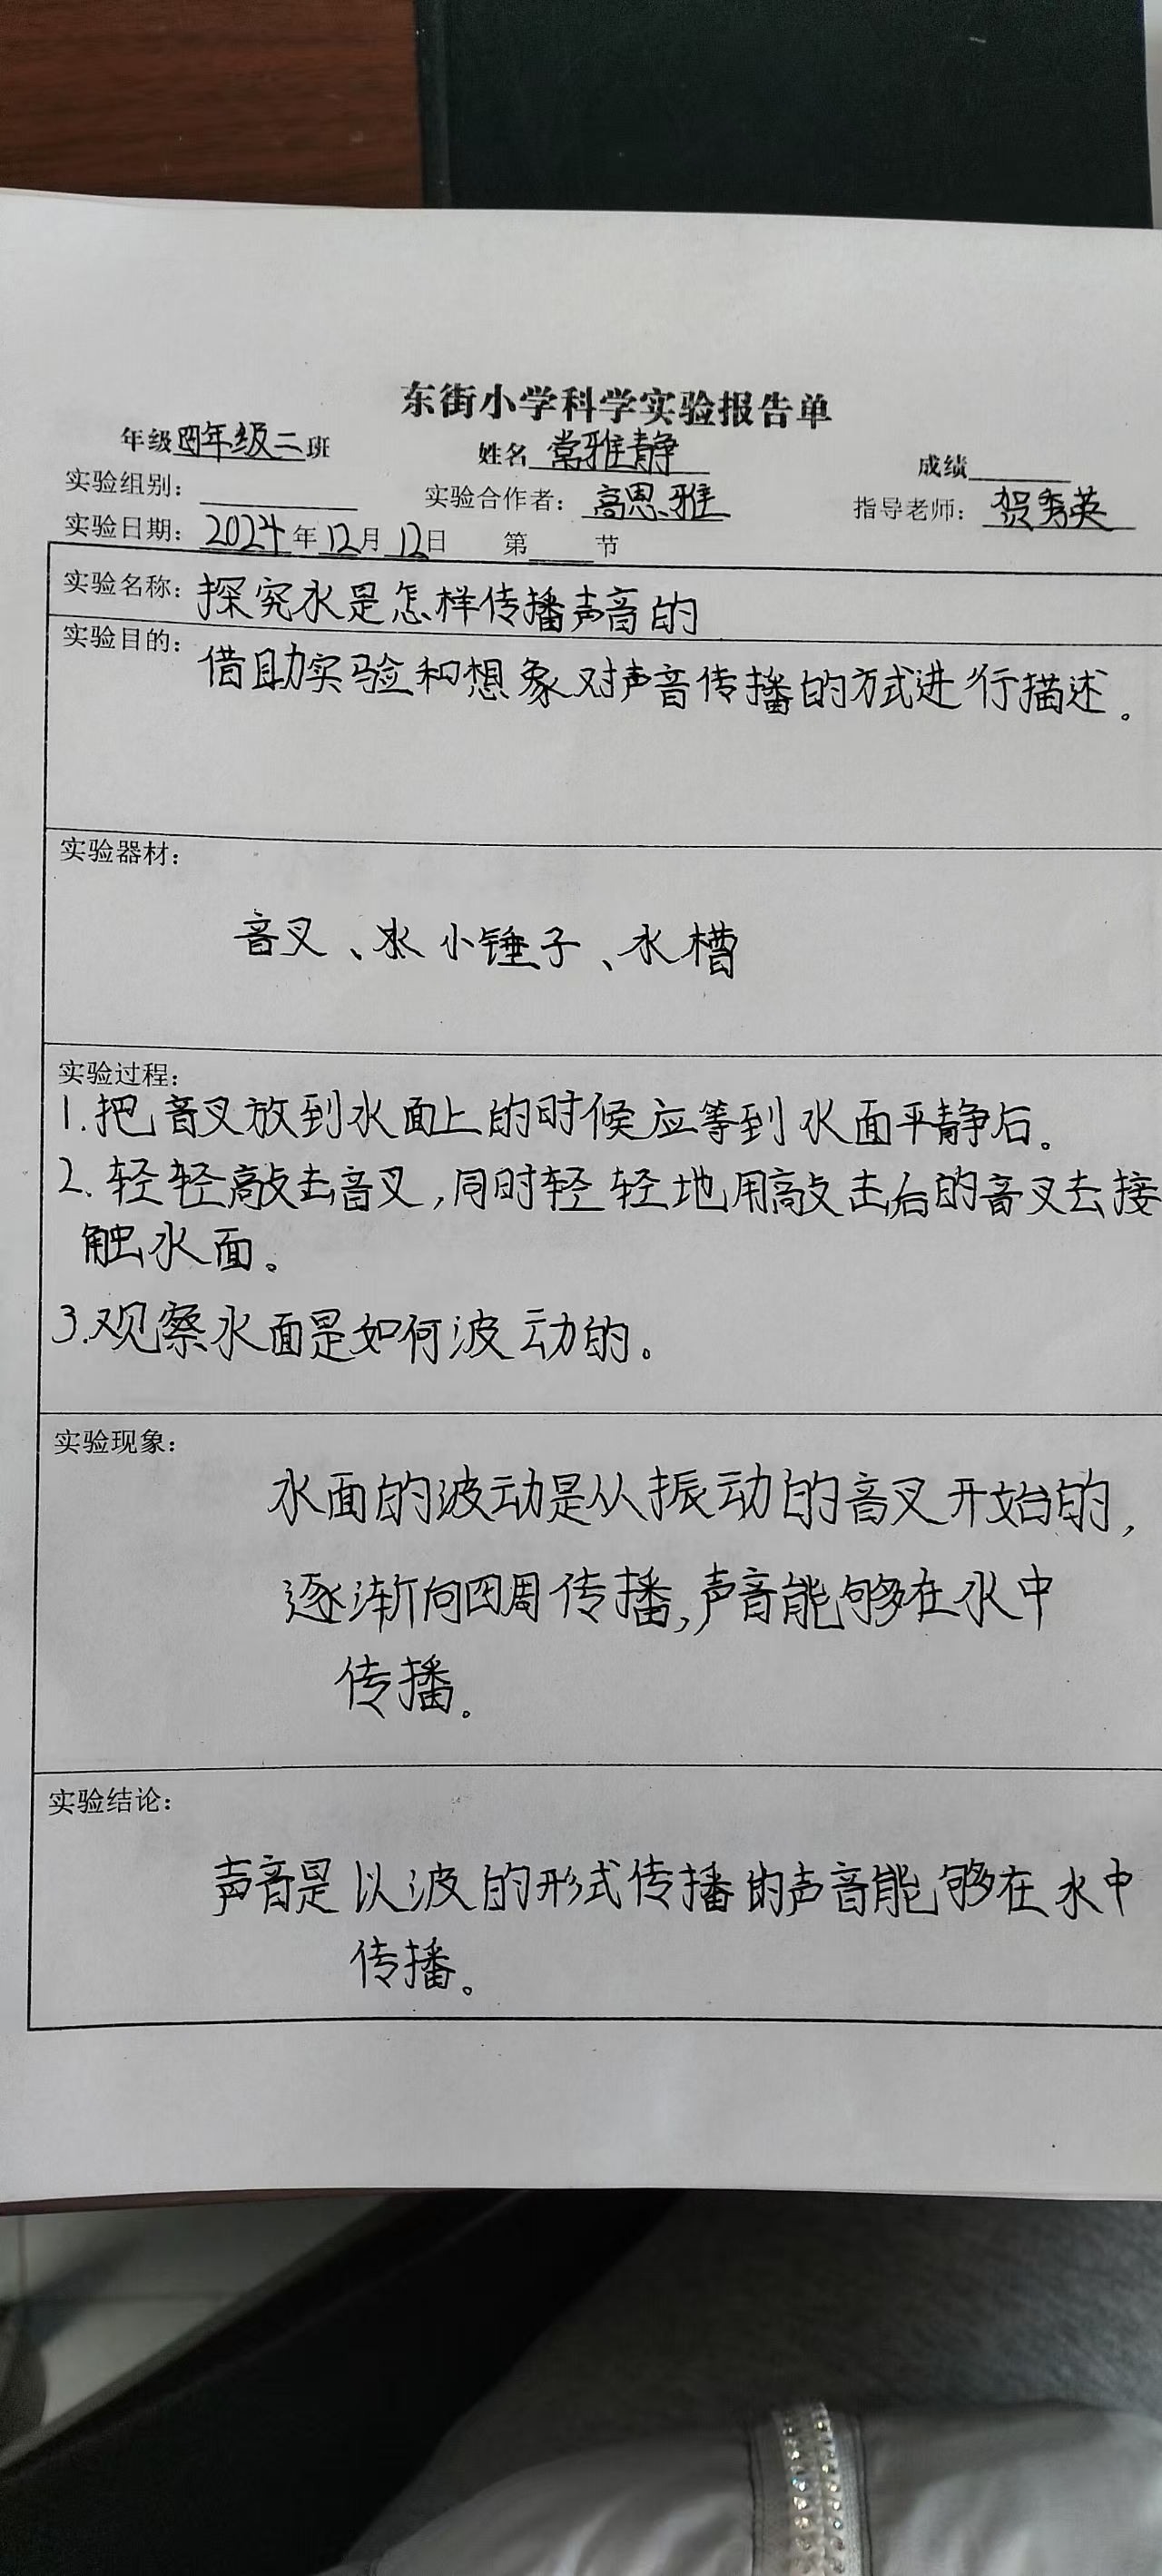 东街小学科学实验报告单
年级四年级二班 姓名 常雅静 成绩
实验组别： 实验合作者：高思雅 指导老师：贺秀英
实验日期：2024年12月12日 第 节
实验名称：探究水是怎样传播声音的
实验目的：借助实验和想象对声音传播的方式进行描述。
实验器材：
音叉、水 小锤子、水槽
实验过程：
1.把音叉放到水面上的时候应等到水面平静后。
2.轻轻敲击音叉，同时轻轻地用敲击后的音叉去接
触水面。
3.观察水面是如何波动的。
实验现象：
水面的波动是从振动的音叉开始的，
逐渐向四周传播，声音能够在水中
传播。
实验结论：
声音是以波的形式传播的声音能够在水中
传播。